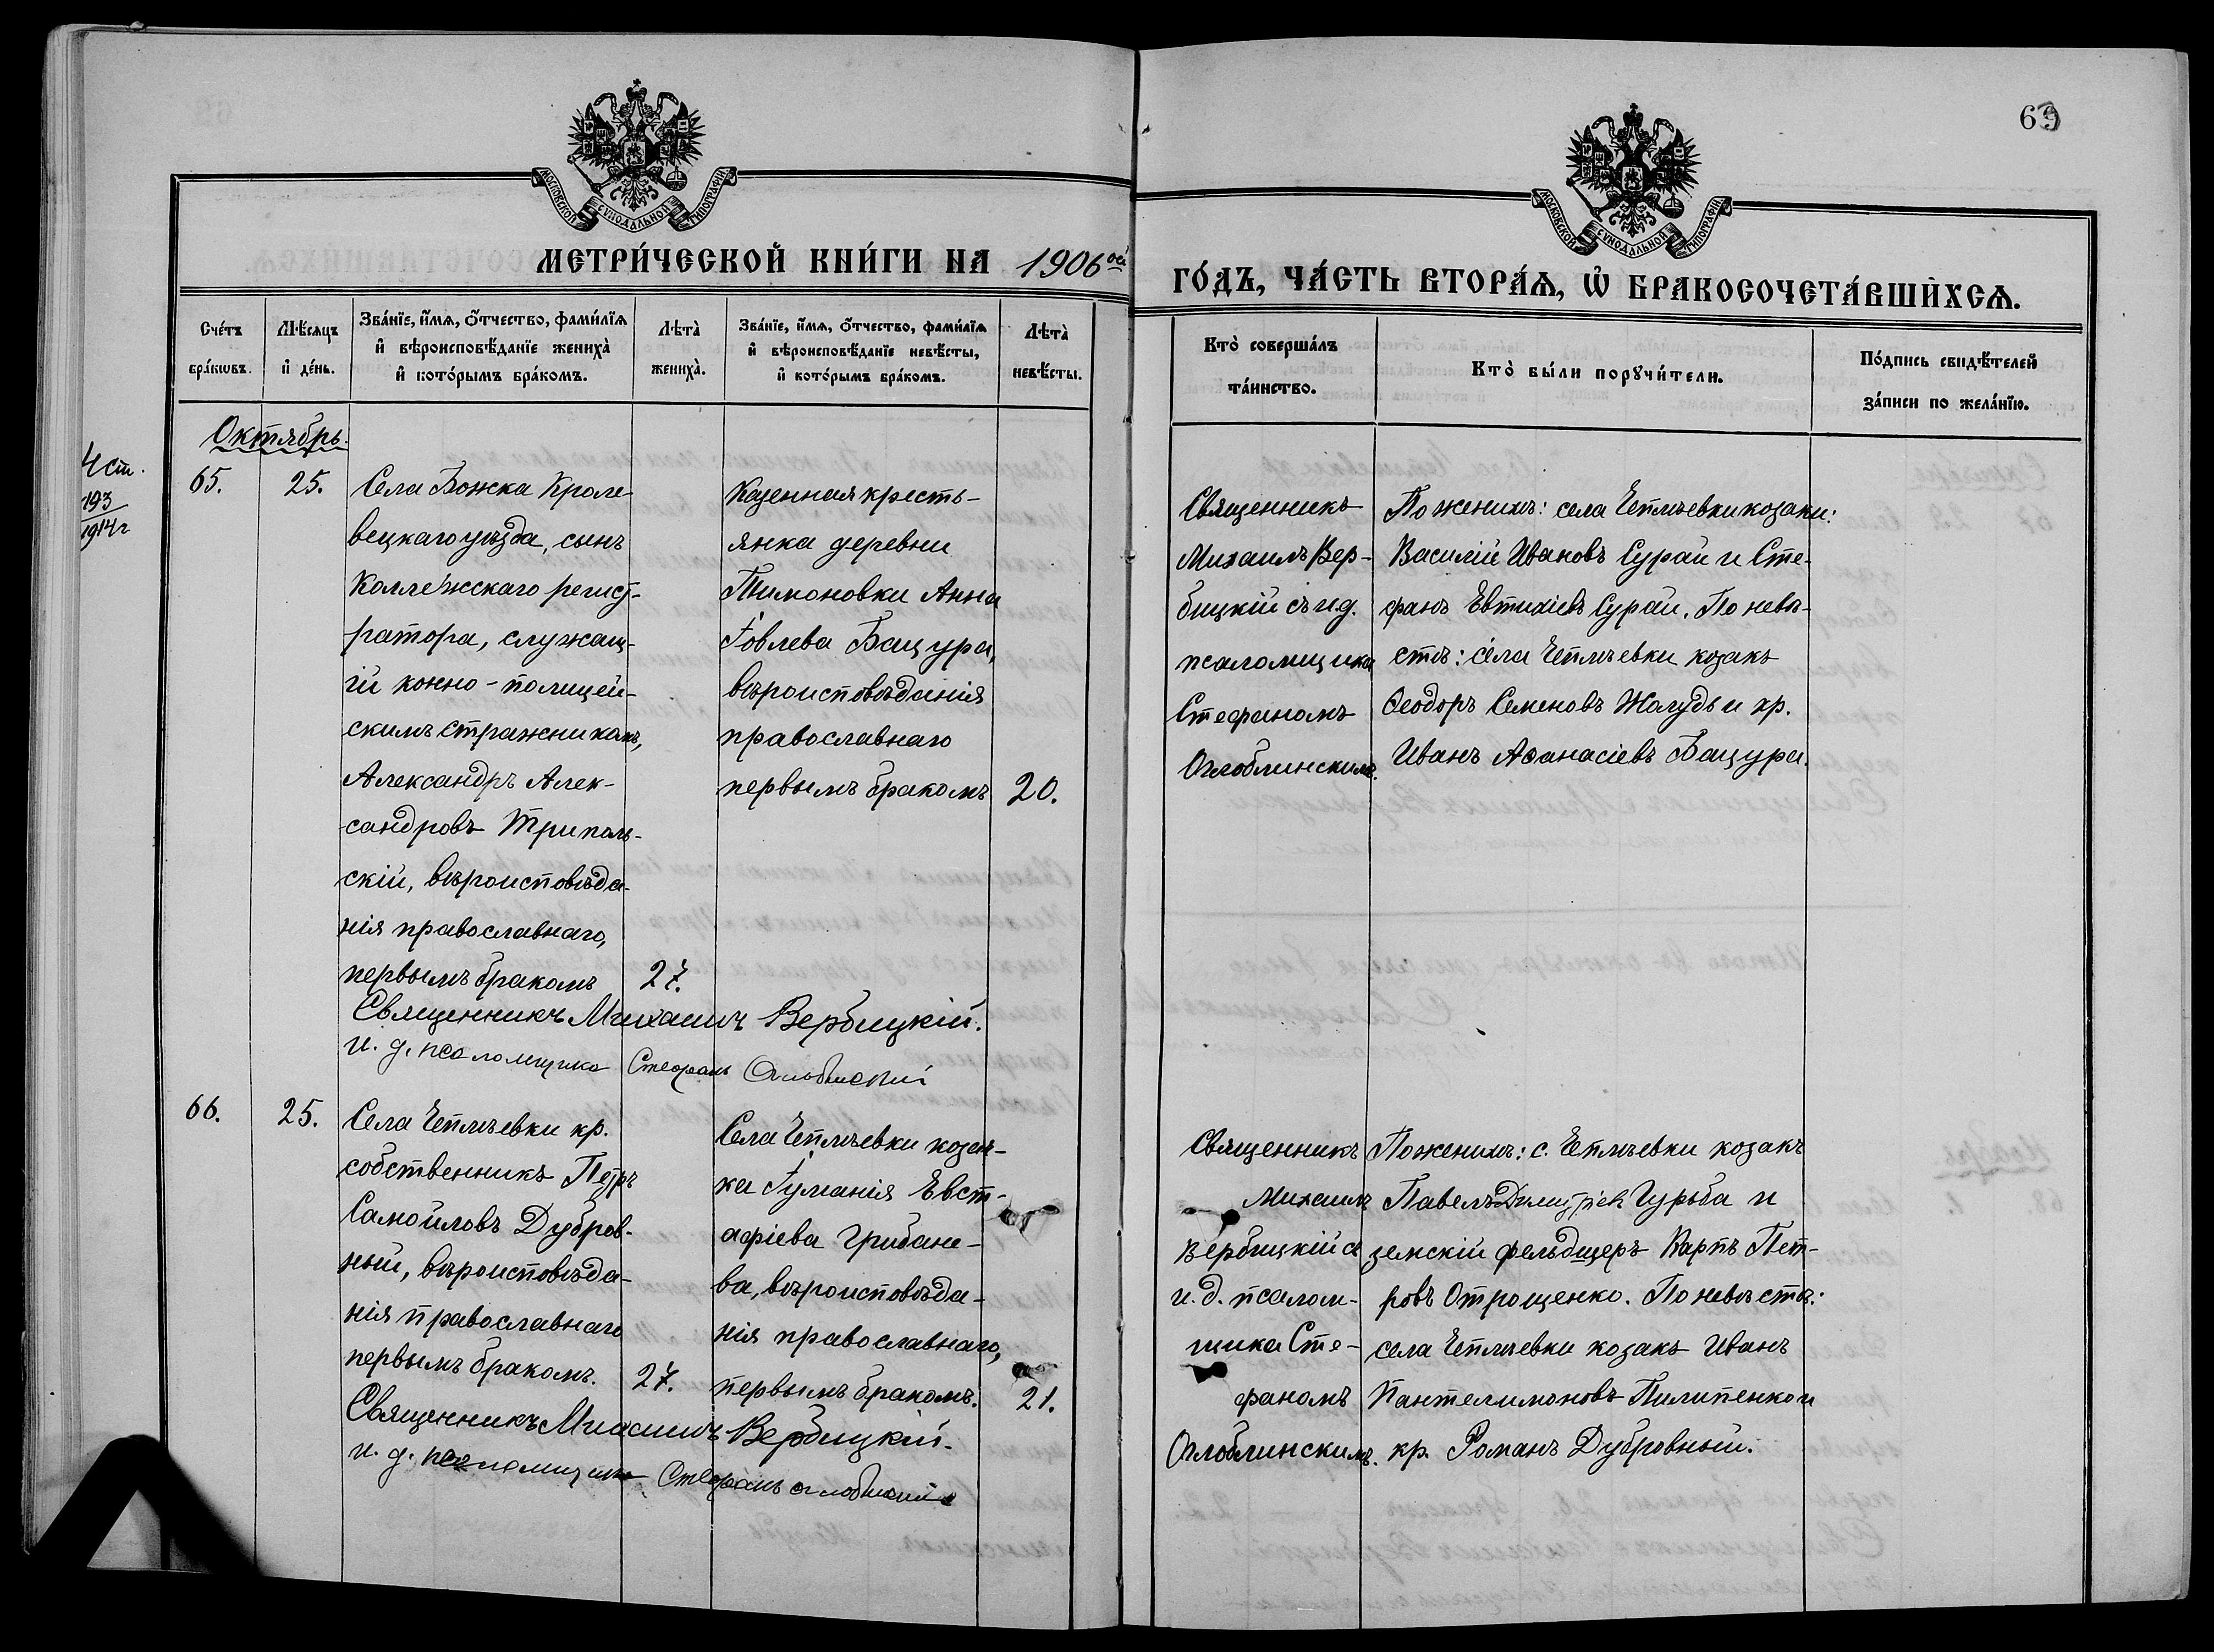 69
МОСКОВСКОЙ СѴНОДАЛЬНОЙ ТИПОГРАФІИ
МОСКОВСКОЙ СѴНОДАЛЬНОЙ ТИПОГРАФІИ
МЕТРИ́ЧЕСКОЙ КНИ́ГИ НА 1906ой
ГО́ДЪ, ЧА́СТЬ ВТОРА́Ѧ, Ѡ҆ БРАКОСОЧЕТА́ВШИХСѦ.
Сче́тъ
бра́кѡвъ.
Мѣ́сяцъ
и҆ де́нь.
Зва́нїе, и҆́мѧ, ѻ҆́тчество, фами́лїѧ
и҆ вѣроисповѣ́данїе жениха̀
и҆ кото́рымъ бра́комъ.
Лѣ́та̀
жениха̀.
Зва́нїе, и҆́мѧ, ѻ҆́тчество, фами́лїѧ
и҆ вѣроисповѣ́данїе невѣ́сты,
и҆ кото́рымъ бра́комъ.
Лѣ́та̀
невѣ́сты.
Кто̀ соверша́лъ
та́инство.
Кто̀ бы́ли порꙋчи́тели.
По́дпись свидѣ́телей
за́писи по жела́нїю.
Октябрь.
4 ст.
193
1914 г
65.
25.
Села Божка Кроле-
вецкаго уѣзда, сынъ
Коллежскаго регист-
ратора, служащ-
ій конно-полицей-
скимъ стражникомъ,
Александръ Алек-
сандровъ Триполь-
скій, вѣроисповѣда-
нія православнаго,
первымъ бракомъ
27.
Казенная кресть-
янка деревни
Тимоновки Анна
Іовлева Бацура,
вѣроисповѣданія
православнаго
первымъ бракомъ
20.
Священникъ
Михаилъ Вер-
бицкій съ и.д.
псаломщика
Стефаномъ
Оглоблинскимъ.
По женихѣ: села Чеплѣевки козаки:
Василій Ивановъ Сурай и Сте-
фанъ Евтихіевъ Сурай. По невѣ-
стѣ: села Чеплѣевки козакъ
Ѳеодоръ Семеновъ Жолудь и кр.
Иванъ Аѳанасіевъ Бацура.
Священникъ Михаилъ Вербицкій.
и. д. псаломщика Стефанъ Оглоблинскій
66.
25.
Села Чеплѣевки кр.
собственникъ Петръ
Самойловъ Дубров-
ный, вѣроисповѣда-
нія православнаго
первымъ бракомъ.
27.
Села Чеплѣевки козач-
ка Іуланія Евст-
афіева Грибане-
ва, вѣроисповѣда-
нія православнаго,
первымъ бракомъ.
21.
Священникъ
Михаилъ
Вербицкій съ
и.д. псалом-
щика Сте-
фаномъ
Оглоблинскимъ.
По женихѣ: с. Чеплѣевки козакъ
Павелъ Димитріев Гурьба и
земскій фельдщеръ Карпъ Пет-
ровъ Отрощенко. По невѣстѣ:
села Чеплѣевки козакъ Иванъ
Пантелимоновъ Пилипенко и
кр. Романъ Дубровный.
Священникъ Михаилъ Вербицкій.
и. д. псаломщика Стефанъ Оглоблинскій